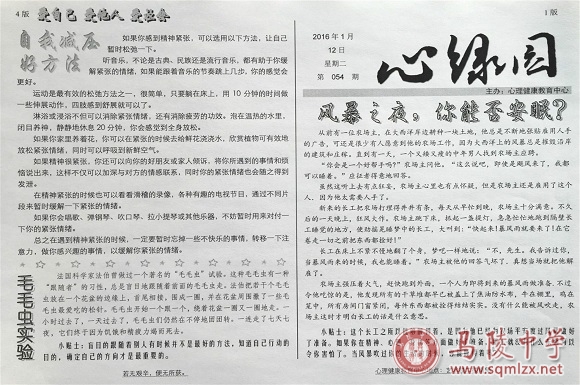 4版 爱自己 爱他人 爱社会
自我减压
好方法
如果你感到精神紧张，可以选用以下方法，让自己
暂时松弛一下。
听音乐，不论是古典、民族还是流行音乐，都有助于你缓
解紧张的情绪，如果能跟着音乐的节奏跳上几步，你的感觉会
更好。
运动是最有效的松弛方法之一，很简单，只要躺在床上，用 10 分钟的时间做
一些伸展动作，四肢感到舒展就可以了。
淋浴或漫浴不但可以消除紧张情绪，还有消除疲劳的功效。泡在温热的水里，
闭目养神，静静地休息 20 分钟，你会感觉到全身放松。
如果你家里养着花，你可以在紧张的时候去给鲜花浇浇水，欣赏植物可有效地
放松紧张情绪，同时可以呼吸到新鲜空气。
如果精神很紧张，你还可以向你的好朋友或家人倾诉，将你所遇到的事情和烦
恼说出来，这样不仅可以加深与对方的感情联系，同时你的紧张情绪也会随之得到
发泄。
在精神紧张的时候也可以看看滑稽的录像、各种有趣的电视节目，通过不同片
段来暂时缓解一下紧张的情绪。
如果你会唱歌、弹钢琴、吹口琴、拉小提琴或其他乐器，不妨暂时用来对付一
下你的紧张情绪。
总之在遇到精神紧张的时候，一定要暂时忘掉一些不快乐的事情，转移一下注
意力，做你感兴趣的事情，以缓解你紧张的情绪。
毛毛虫实验
法国科学家法伯曾做过一个著名的“毛毛虫”试验。这种毛毛虫有一种
“跟随者”的习性，总是盲目地跟随着前面的毛毛虫走。法伯把若干个毛毛
虫放在一个花盆的边缘上，首尾相接，围成一圈，并在花盆周围撒了一些毛
毛虫最爱吃的松针。毛毛虫开始一个跟一个，绕着花盆一圈又一圈地走。一
小时过去了，一天过去了，毛毛虫们仍然在不停地团团转。一连走了七天七
夜，它们终于因为饥饿和精疲力竭而死去。
小贴士：盲目的跟随着别人有时候并不是最好的方法，知道自己行动的
目的，确定自己的方向才是最重要的。
若无艰辛，便无所获。
1版
2016 年 1 月
12 日
星期二
第 054 期
心绿园
主办：心理健康教育中心
风暴之夜，你能否安眠？
从前有一位农场主，在大西洋岸边耕种一块土地，他总是不断地张贴雇用人手
的广告，可还是很少有人愿意到他的农场工作，因为大西洋上的风暴总是摧毁沿岸
的建筑和庄稼。直到有一天，一个又矮又瘦的中年男人找到农场主应聘。
“你会是一个好帮手吗？”农场主问他。“这么说吧，即使是飓风来了，我都
可以睡着。”应征者得意地回答。
虽然这听上去有点狂妄，农场主心里也有点怀疑，但是农场主还是雇用了这个
人，因为他太需要人手了。
新来的长工把农场打理得井井有条，每天从早忙到晚，农场主十分满意。不久
后的一天晚上，狂风大作。农场主跳下床，抓起一盏提灯，急急忙忙地跑到隔壁长
工睡觉的地方，使劲摇晃睡梦中的长工，大叫到：“快起来！暴风雨就要来了！在它
卷走一切之前把东西都拴好！”
长工在床上不紧不慢地翻了个身，梦呓一样地说：“不，先生。我告诉过你，
当暴风雨来的时候，我也能睡着。”农场主被他的回答气坏了，真想当场就把他解
雇了。
农场主强压着火气，赶快跑到外面，一个人为即将到来的暴风雨做准备。不过
令他吃惊的是，他发现所有的干草堆都早已被盖上了焦油防水布，牛在棚里，鸡在
笼中，所有房间门窗紧闭，每件东西都被拴得结结实实，没有什么能被风吹走，农
场主这时才明白长工的话是什么意思。
马陵中学
www.sqmlzx.net